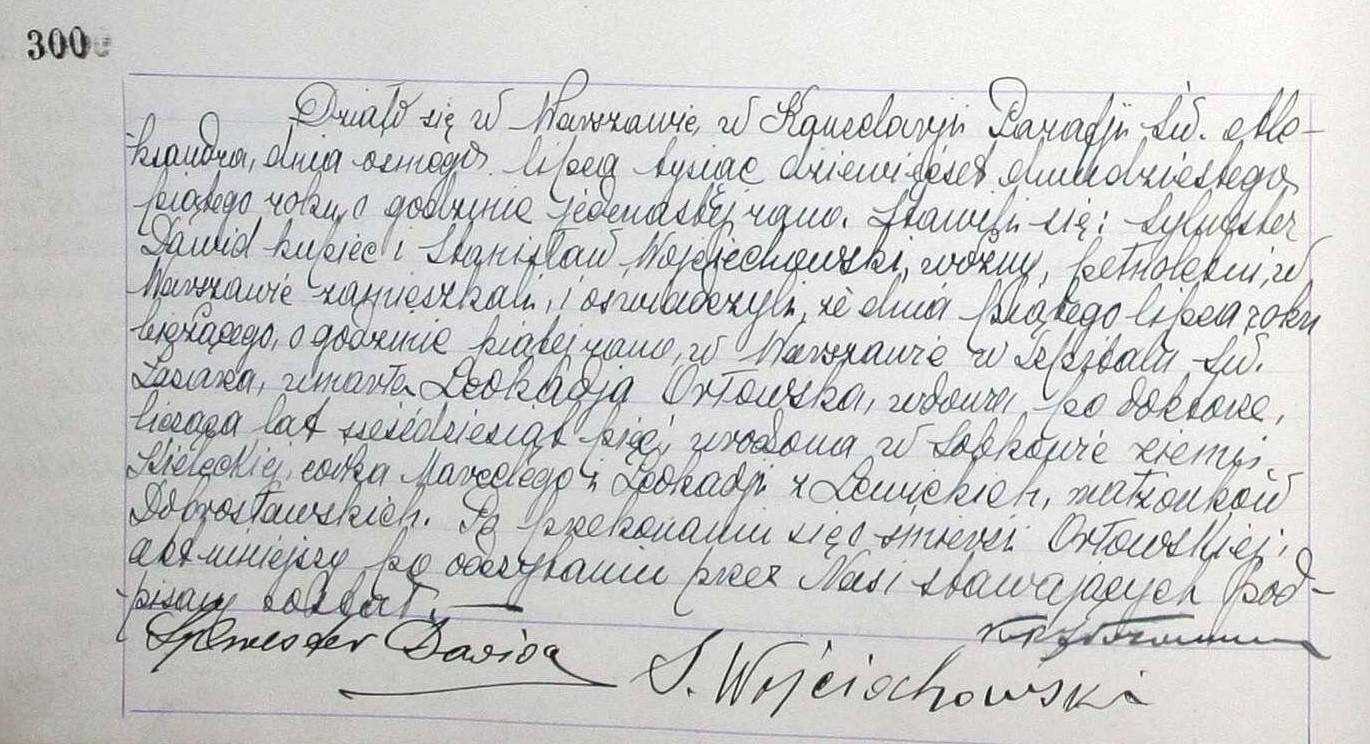 300
Działo się w Warszawie, w Kancelaryi Parafji Św. Ale-
ksandra, dnia ósmego lipca tysiąc dziewięćset dwudziestego
piątego roku, o godzinie jedenastej rano. Stawili się: Sylwester
Dawid kupiec i Stanisław Wojciechowski, woźny, pełnoletni, w
Warszawie zamieszkali, i oświadczyli, że dnia piątego lipca roku
bieżącego, o godzinie piątej rano, w Warszawie w Szpitalu Św.
Łazarza, umarła Leokadja Orłowska, wdowa po doktorze,
licząca lat sześćdziesiąt pięć, urodzona w Sobkowie ziemi
Kieleckiej, córka Marcelego i Leokadji z Lewickich, małżonków
Dobrosławskich. Po przekonaniu się o śmierci Orłowskiej,
akt niniejszy po odczytaniu przez Nas i stawających pod-
pisany został.
Sylwester Dawid S. Wojciechowski